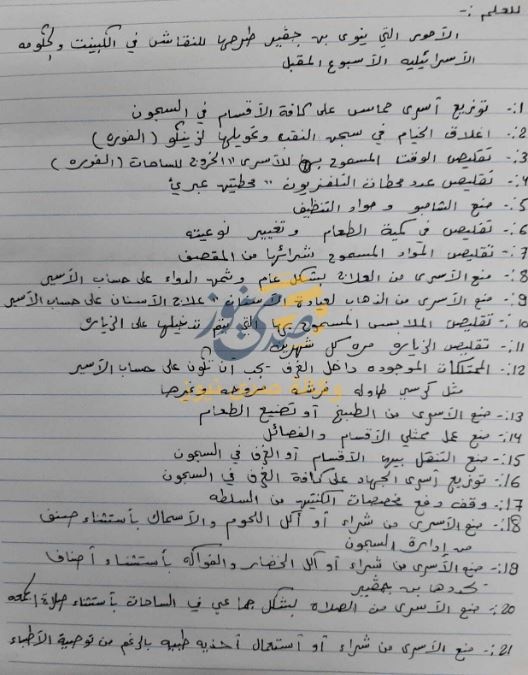 للعلم :-
الأمور التي ينوي بن جفير طرحها للنقاش في الكبينت والحكومه
الأسرائيليه الأسبوع المقبل
1:- توزيع أسرى حماس على كافة الأقسام في السجون
2:- اغلاق الخيام في سجن النقب وتحويلها لزينكو (الفوره)
3:- تقليص الوقت المسموح به للأسرى "الخروج للساحات (الفوره)
4:- تقليص عدد محطات التلفزيون "محطتين عبري"
5:- منع الشامبو ومواد التنظيف
6:- تقليص في كمية الطعام وتغيير نوعيته
7:- تقليص المواد المسموح شرائها من المقصف
8:- منع الأسرى من العلاج بشكل عام وثمن الدواء على حساب الأسير
9:- منع الأسرى من الذهاب لعيادة الأسنان علاج الأسنان على حساب الأسير
10:- تقليص الملابس المسموح بها التي يتم تدخيلها على الزياره
11:- تقليص الزياره مره كل شهرين
12:- الممتلكات الموجوده داخل الغرف يجب أن تكون على حساب الأسير
مثل كرسي طاوله فرشه مروحه وغيرها
13:- منع الأسرى من الطبيخ أو تصنيع الطعام
14:- منع عمل ممثلي الأقسام والفصائل
15:- منع التنقل بين الأقسام أو الغرف في السجون
16:- توزيع أسرى الجهاد على كافة الغرف في السجون
17:- وقف دفع مخصصات الكنتين من السلطه
18:- منع الأسرى من شراء أو أكل اللحوم والأسماك بأستثناء صنف
من إدارة السجون
19:- منع الأسرى من شراء أو أكل الخضار والفواكه بأستثناء أصناف
تحددها بن جفير
20:- منع الأسرى من الصلاه بشكل جماعي في الساحات بأستثناء صلاة الجمعه
21:- منع الأسرى من شراء أو أستعمال أحذيه طبيه بالرغم من توصية الأطباء
صدى نيوز
وكالة صدى نيوز